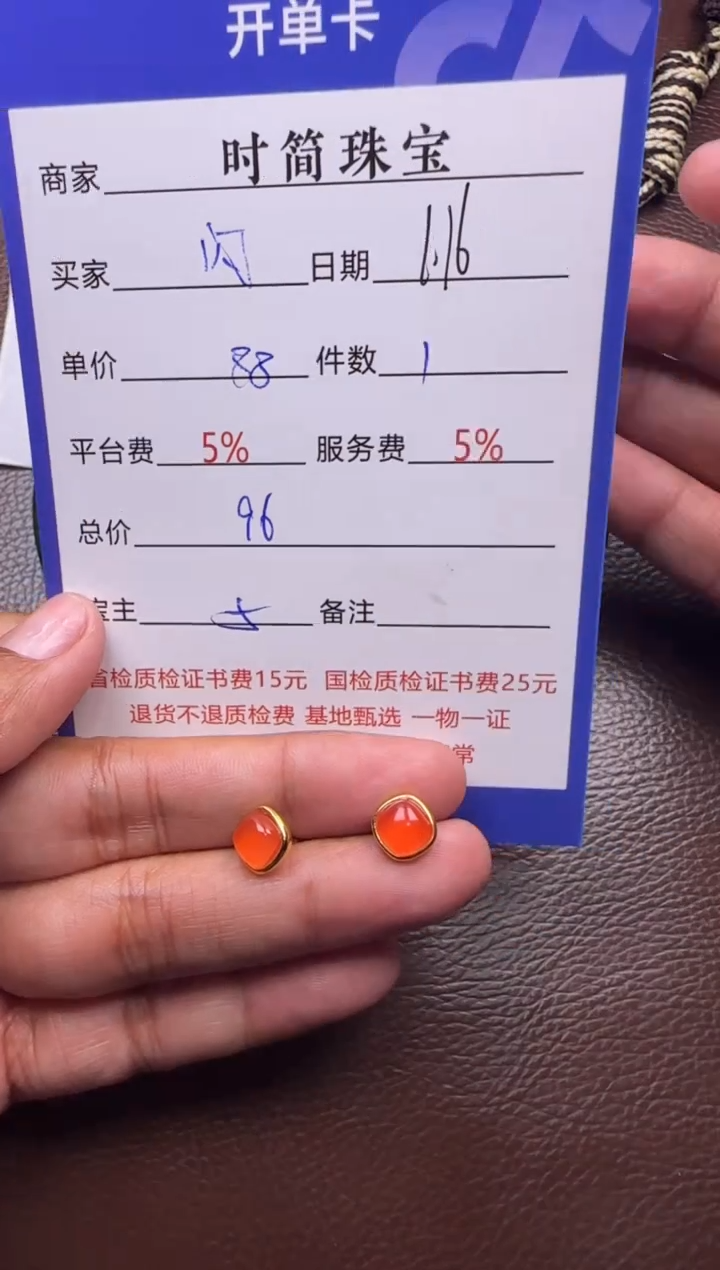 开单卡
商家 时简珠宝
买家 闪 日期 1.16
单价 88 件数 1
平台费 5% 服务费 5%
总价 96
主 备注
省检质检证书费15元 国检质检证书费25元
退货不退质检费 基地甄选 一物一证
常